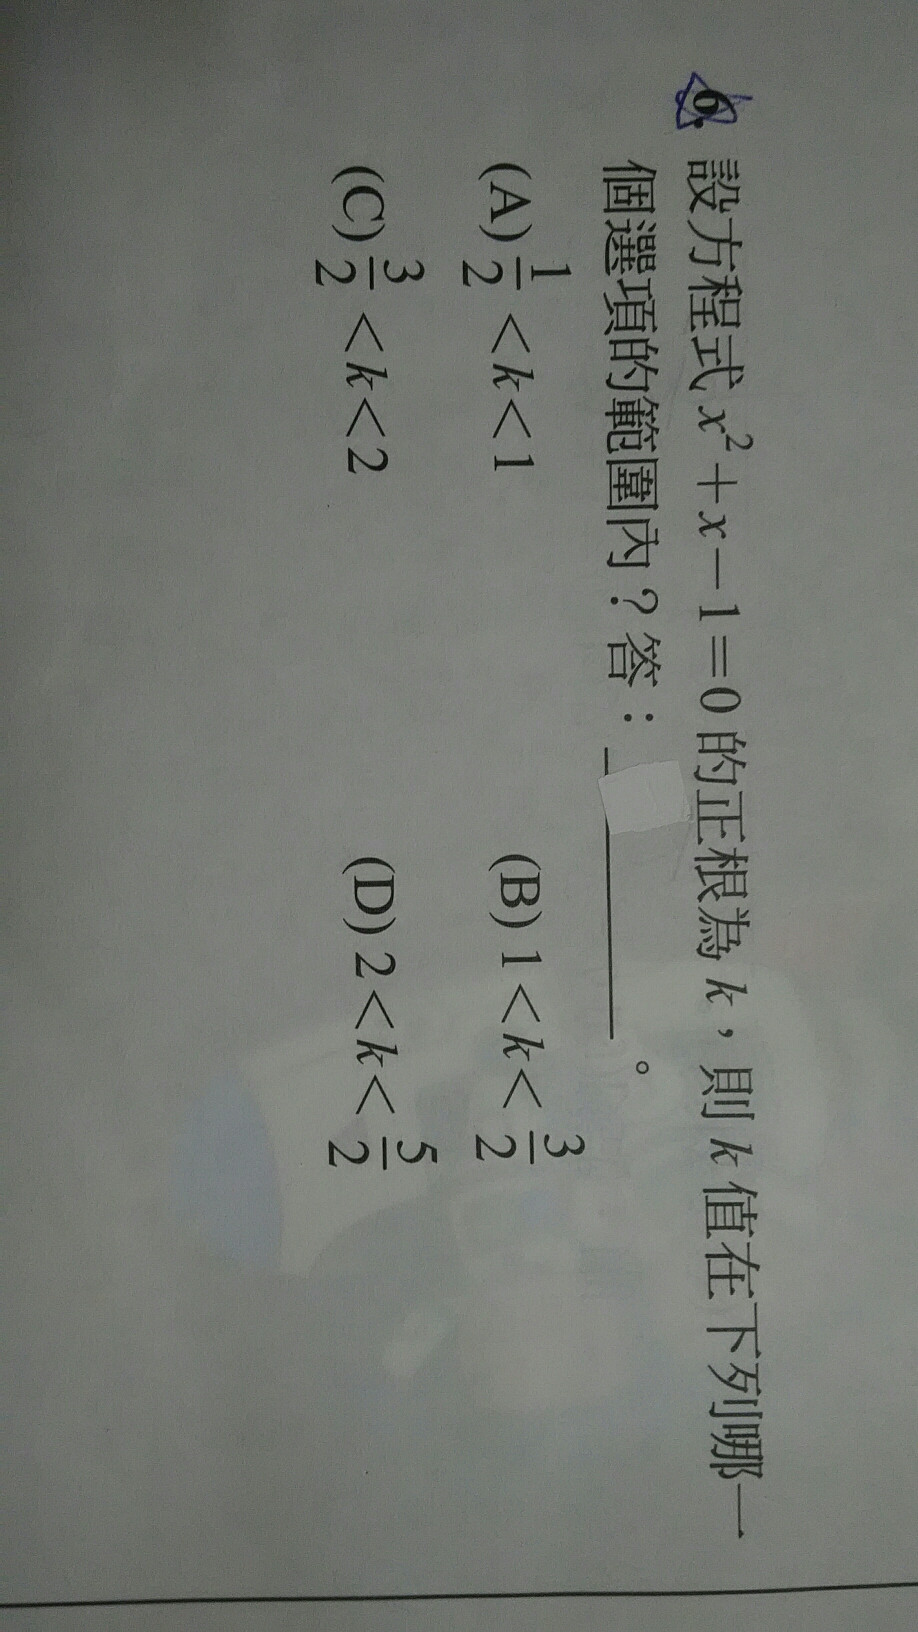 6. 設方程式 x²+x−1=0 的正根為 k，則 k 值在下列哪一
個選項的範圍內？答：________。
(A) 1/2<k<1 (B) 1<k<3/2
(C) 3/2<k<2 (D) 2<k<5/2